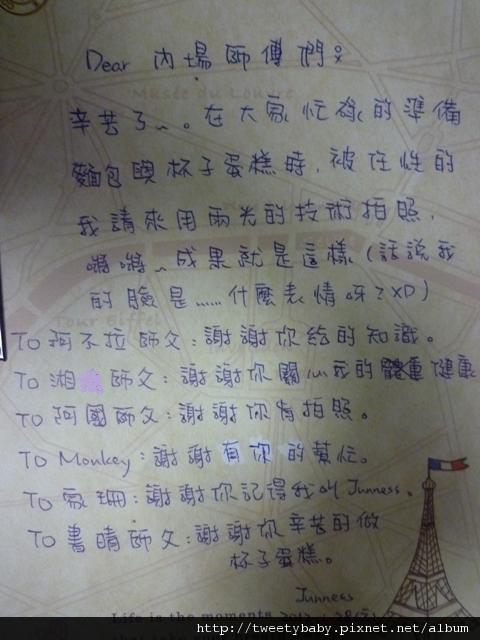 Dear 內場師傅們:
Musée du Louvre
辛苦了~。在大家忙碌的準備
麵包與杯子蛋糕時,被任性的
我請來用兩光的技術拍照,
嘚嘚~成果就是這樣(話說我
的臉是......什麼表情呀?XD)
Tour Eiffel
To 阿不拉師父:謝謝你給的知識。
To 湘 師父:謝謝你關心我的體重健康
To 阿國師父:謝謝你肯拍照。
To Monkey:謝謝有你的幫忙。
To 家珊:謝謝你記得我叫Junness。
To 書晴師父:謝謝你辛苦的做
杯子蛋糕。
Junness
Life is the moments
http://tweetybaby.pixnet.net/album